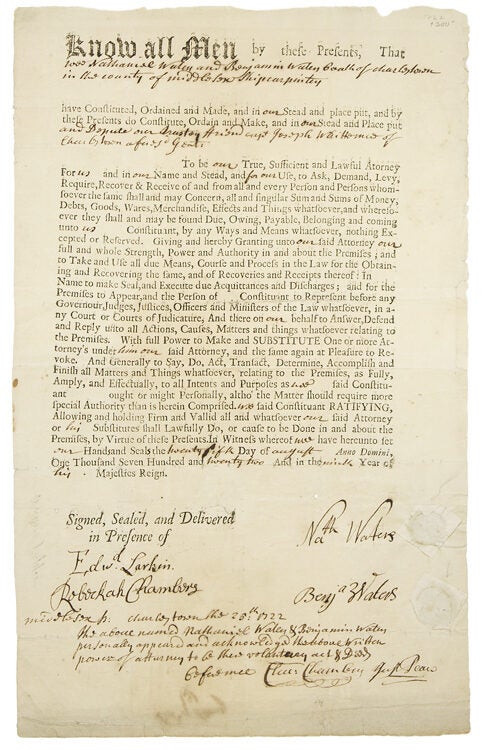 Know all Men by these Presents, That
wee Nathaniel Waters and Benjamin Waters boath of charlestown
in the county of middlesex Shipcarpinters
have Constituted, Ordained and Made, and in our Stead and place put, and by
these Presents do Constitute, Ordain and Make, and in our Stead and Place put
and Depute our trusty friend capt Joseph Whittemore of
Charlstown aforesd Gent.
To be our True, Sufficient and Lawful Attorney
For us and in our Name and Stead, and for our Use, to Ask, Demand, Levy,
Require, Recover & Receive of and from all and every Person and Persons whom-
soever the same shall and may Concern, all and singular Sum and Sums of Money,
Debts, Goods, Wares, Merchandise, Effects and Things whatsoever, and whereso-
ever they shall and may be found Due, Owing, Payable, Belonging and coming
unto us Constituant, by any Ways and Means whatsoever, nothing Ex-
cepted or Reserved. Giving and hereby Granting unto our said Attorney our
full and whole Strength, Power and Authority in and about the Premises; and
to Take and Use all due Means, Course and Process in the Law for the Obtain-
ing and Recovering the same, and of Recoveries and Receipts thereof: In
Name to make, Seal, and Execute due Acquittances and Discharges; and for the
Premises to Appear, and the Person of Constituant to Represent before any
Governour, Judges, Justices, Officers and Ministers of the Law whatsoever, in a-
ny Court or Courts of Judicature, And there on our behalf to Answer, Defend
and Reply unto all Actions, Causes, Matters and things whatsoever relating to
the Premises. With full Power to Make and SUBSTITUTE One or more At-
torney's under him our said Attorney, and the same again at Pleasure to Re-
voke. And Generally to Say, Do, Act, Transact, Determine, Accomplish and
Finish all Matters and Things whatsoever, relating to the Premises, as Fully,
Amply, and Effectually, to all Intents and Purposes as wee said Constitu-
ant ought or might Personally, altho' the Matter should require more
special Authority than is herein Comprised. we said Constituant RATIFYING,
Allowing and holding Firm and Vallid all and whatsoever our said Attorney
or his Substitutes shall Lawfully Do, or cause to be Done in and about the
Premises, by Virtue of these Presents. In Witness whereof we have hereunto set
our Hands and Seals the twenty fifth Day of august Anno Domini,
One Thousand Seven Hundred and twenty two And in the ninth Year of
his Majesties Reign.
Signed, Sealed, and Delivered
in Presence of
Nath Waters
Edwd. Larkin.
Rebeckah Chambers
Benja Waters
middlesex ss. charlestown the 25th 1722
the above named Nathaniel Waters & Benjamin Waters
personally appeared and acknowledgd the above written
power of attorney to be their voluntary act & Deed
before mee Chambers Just Peace